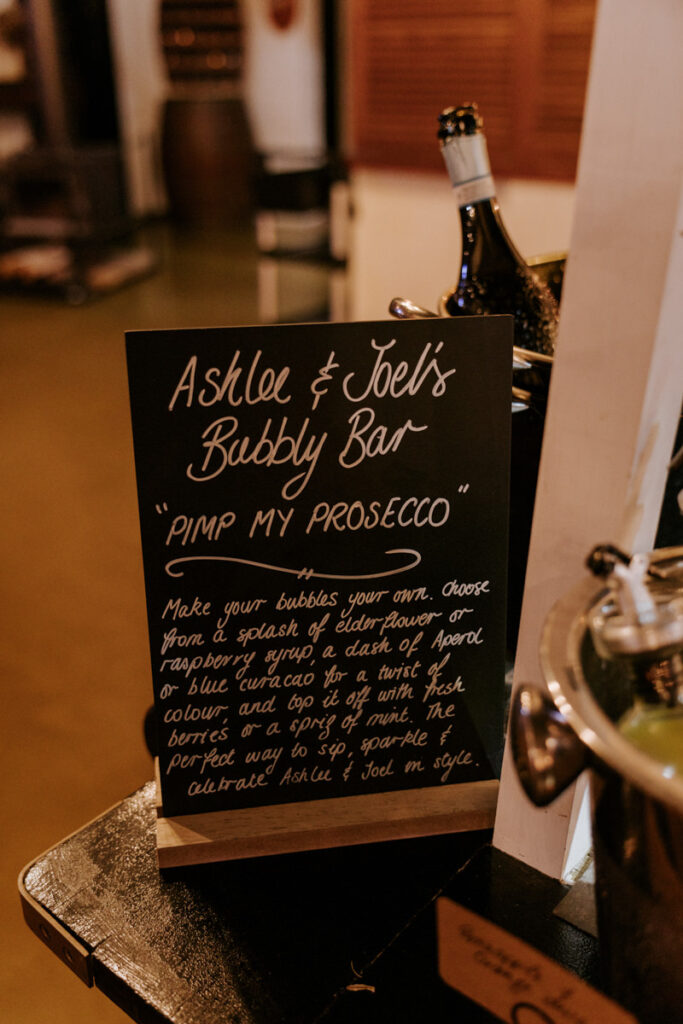 Ashlee & Joel's
Bubbly Bar
"PIMP MY PROSECCO"
Make your bubbles your own. Choose
from a splash of elderflower or
raspberry syrup, a dash of Aperol
or blue curacao for a twist of
colour, and top it off with fresh
berries or a sprig of mint. The
perfect way to sip, sparkle &
celebrate Ashlee & Joel in style.